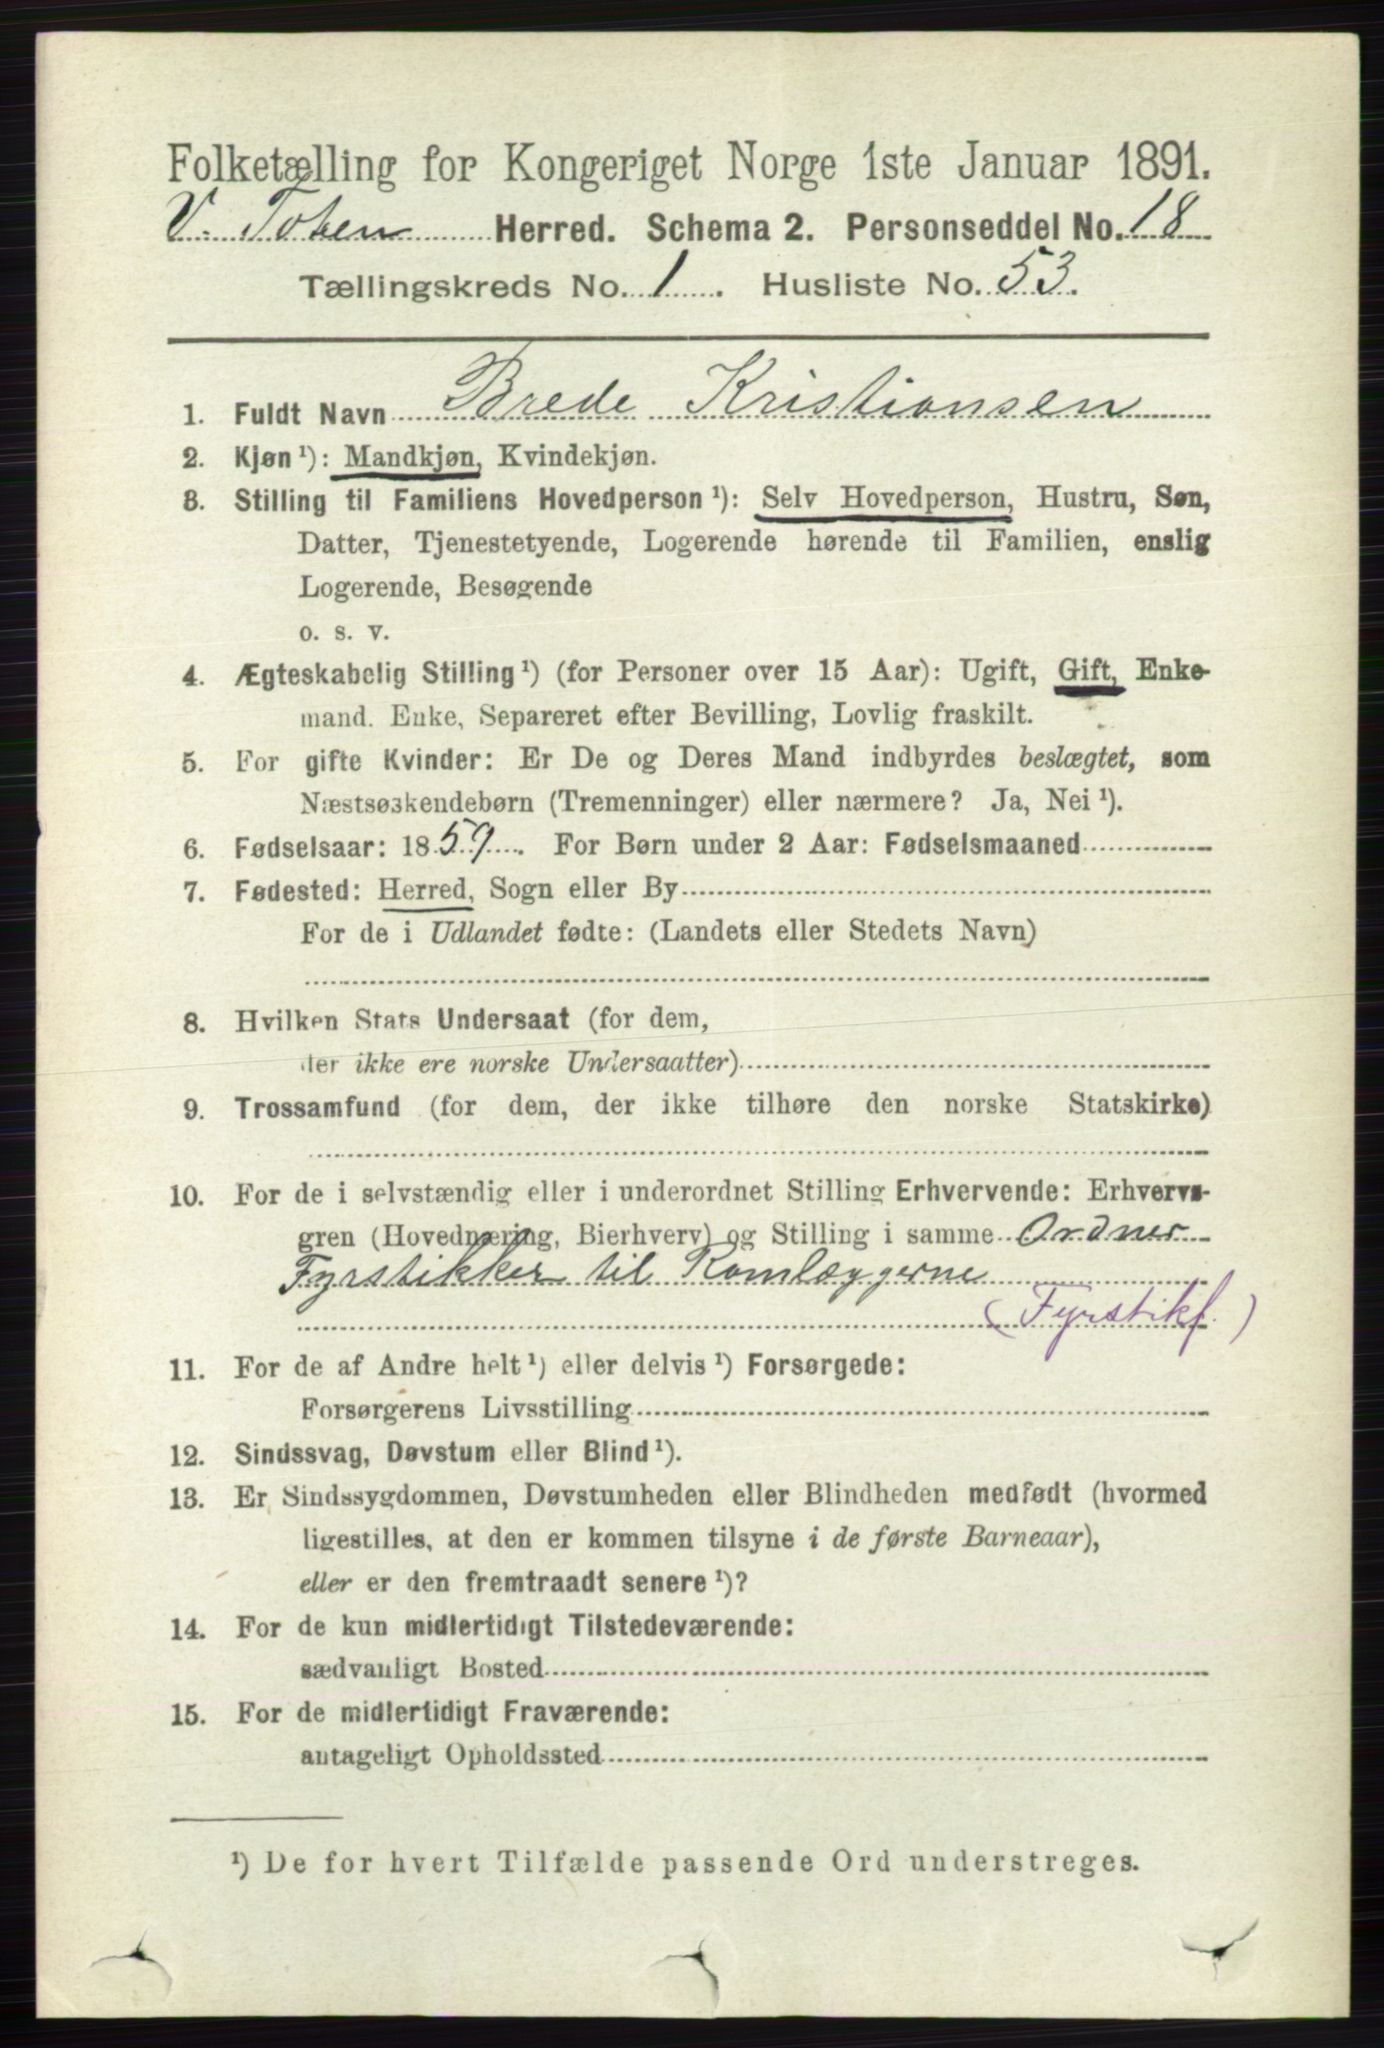 Folketælling for Kongeriget Norge 1ste Januar 1891.
V. Toten Herred. Schema 2. Personseddel No. 18
Tællingskreds No. 1. Husliste No. 53.
1. Fuldt Navn Brede Kristiansen
2. Kjøn ¹): Mandkjøn, Kvindekjøn.
3. Stilling til Familiens Hovedperson ¹): Selv Hovedperson, Hustru, Søn,
Datter, Tjenestetyende, Logerende hørende til Familien, enslig
Logerende, Besøgende
o. s. v.
4. Ægteskabelig Stilling ¹) (for Personer over 15 Aar): Ugift, Gift, Enke-
mand. Enke, Separeret efter Bevilling, Lovlig fraskilt.
5. For gifte Kvinder: Er De og Deres Mand indbyrdes beslægtet, som
Næstsøskendebørn (Tremenninger) eller nærmere? Ja, Nei ¹).
6. Fødselsaar: 1859. For Børn under 2 Aar: Fødselsmaaned
7. Fødested: Herred, Sogn eller By
For de i Udlandet fødte: (Landets eller Stedets Navn)
8. Hvilken Stats Undersaat (for dem,
der ikke ere norske Undersaatter)
9. Trossamfund (for dem, der ikke tilhøre den norske Statskirke)
10. For de i selvstændig eller i underordnet Stilling Erhvervende: Erhvervs-
gren (Hovednæring, Bierhverv) og Stilling i samme Ordner
Fyrstikker til Ramlæggerne
(Fyrstikf.)
11. For de af Andre helt ¹) eller delvis ¹) Forsørgede:
Forsørgerens Livsstilling
12. Sindssvag, Døvstum eller Blind ¹).
13. Er Sindssygdommen, Døvstumheden eller Blindheden medfødt (hvormed
ligestilles, at den er kommen tilsyne i de første Barneaar),
eller er den fremtraadt senere ¹)?
14. For de kun midlertidigt Tilstedeværende:
sædvanligt Bosted
15. For de midlertidigt Fraværende:
antageligt Opholdssted
¹) De for hvert Tilfælde passende Ord understreges.